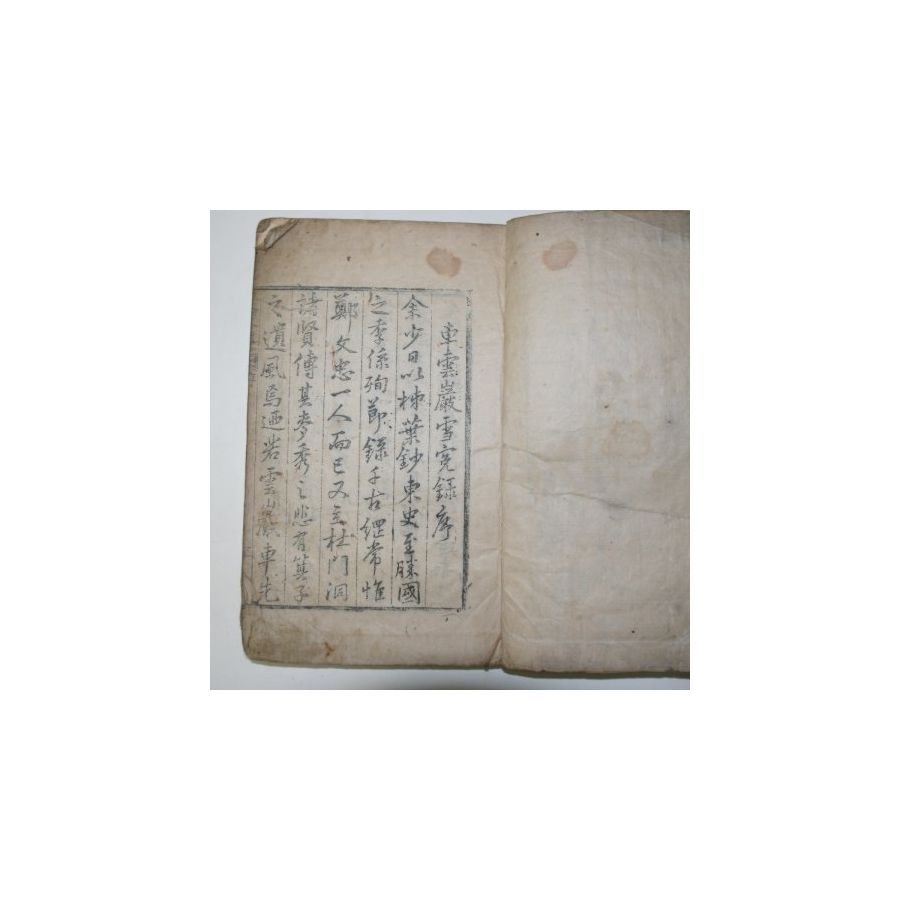 車雲巖雪寃錄序
余少日以柿葉鈔東史至勝國
之季係殉節錄千古綱常惟
鄭文忠一人而已又立杜門洞
諸賢傳其麥秀之悲有箕子
之遺風焉迺若雲巖車先